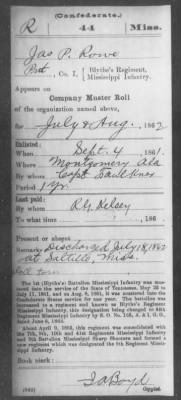 (Confederate.)
R 44 Miss.
Jas P. Rowe
Pvt, Co. I, Blythe's Regiment,
Mississippi Infantry.
Appears on
Company Muster Roll
of the organization named above,
for July & Aug, 1862
Enlisted:
When Sept. 4, 1861.
Where Montgomery Ala
By whom Capt Faulkner
Period 1 yr.
Last paid:
By whom R G Kelsey
To what time , 186 .
Present or absent
Remarks: Discharged July 18, 1862
at Saltillo, Miss.
Roll torn
The 1st (Blythe's) Battalion Mississippi Infantry was mustered
Confederate States service for one year. The battalion was
increased to a regiment known as Blythe's Regiment
Mississippi Infantry, this designation being changed to 44th
Regiment Mississippi Infantry by S. O. No.
dated June 6, 1863.
About April 9, 1865, this regiment was consolidated with
the 7th, 9th, 10th and 41st Regiments Mississippi Infantry and
9th Battalion Mississippi Sharp Shooters and formed a
new regiment which was designated the 9th Regiment Mississippi
Infantry.
(642) J A Boyd
Copyist.